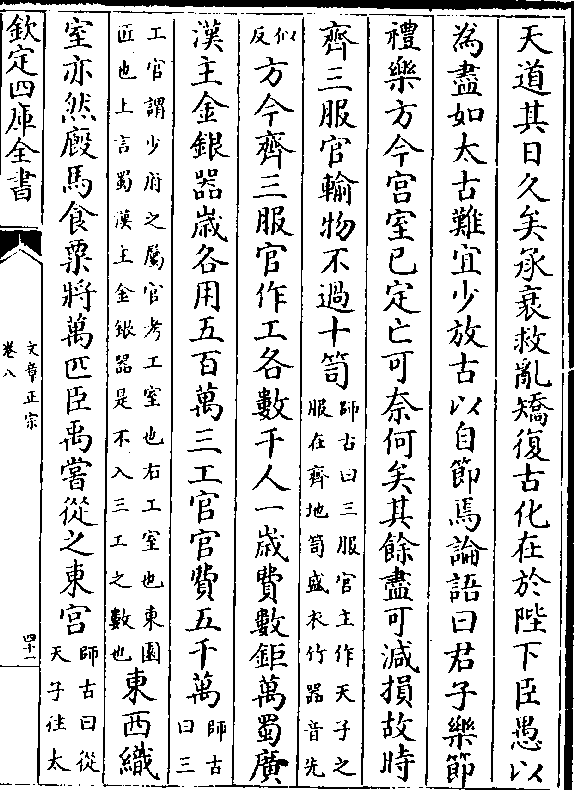 天道其日久矣承衰救亂矯復古化在於陛下臣愚以
為盡如太古難宜少放古以自節焉論語曰君子樂節
禮樂方今宫室已定亡可奈何矣其餘盡可减損故時
齊三服官輸物不過十笥師古曰三服官主作天子之服在齊地笥盛衣竹器音先
似反方今齊三服官作工各數千人一歲費數鉅萬蜀廣
漢主金銀器歲各用五百萬三工官官費五千萬師古曰三
工官謂少府之屬官考工室也右工室也東園匠也上言蜀漢主金銀器是不入三工之數也東西織
室亦然廏馬食粟將萬匹臣禹嘗從之東宫師古曰從天子往太
欽定四庫全書
文章正宗
卷八
四十一